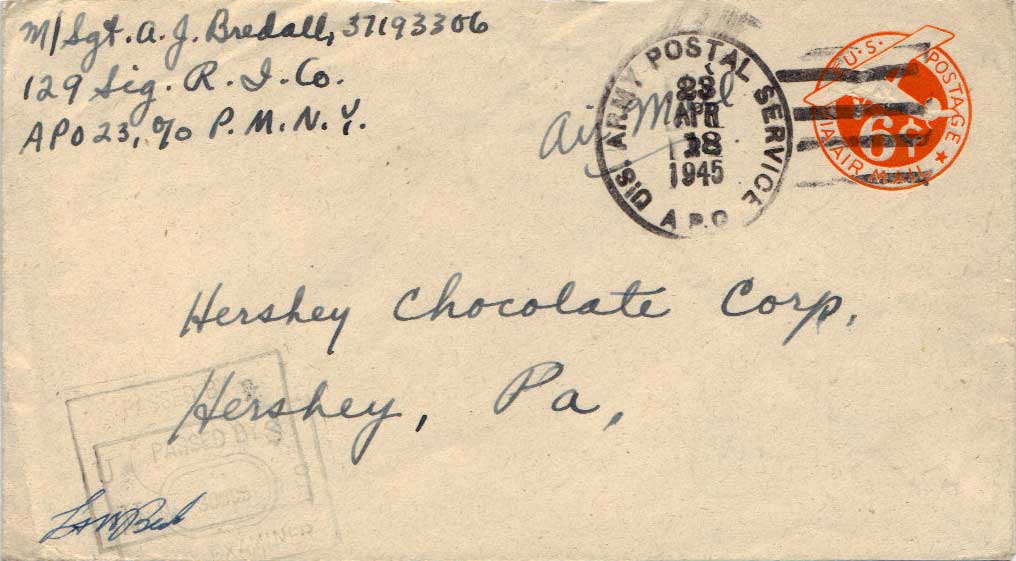 M/Sgt. A. J. Bredall, 37193306
129 Sig. R. I. Co.
APO 23, % P. M. N. Y.
Air Mail
U.S. ARMY POSTAL SERVICE
APR
1945
A.P.O.
U.S. POSTAGE
6¢
VIA AIR MAIL
Hershey Chocolate Corp.
Hershey, Pa,
PASSED BY
U S
EXAMINER